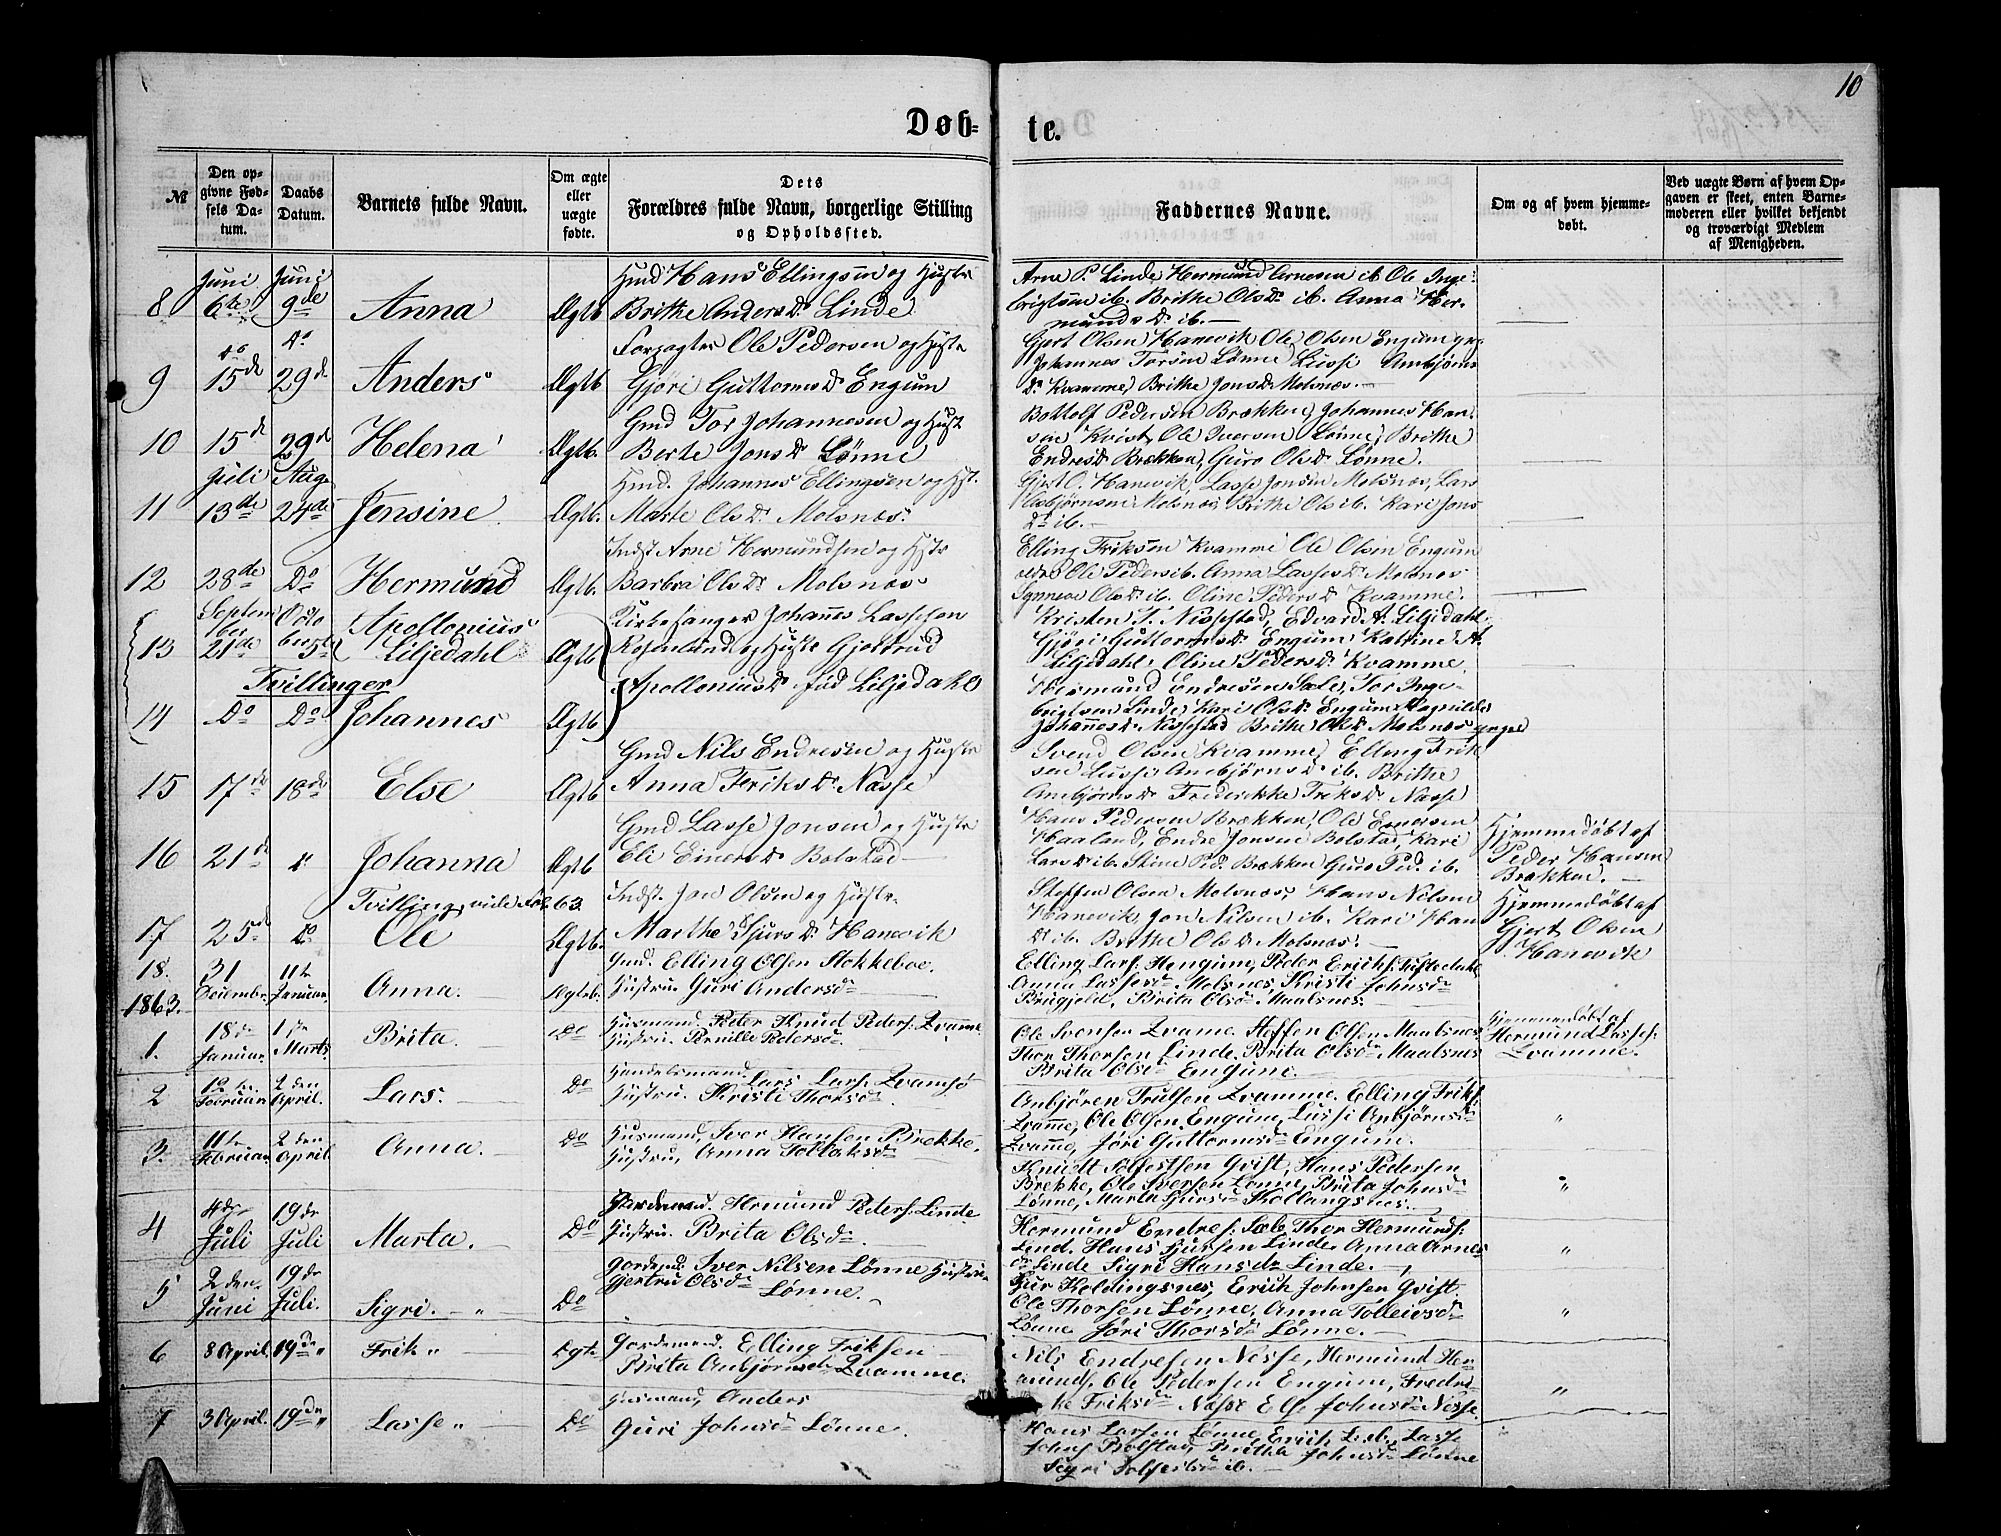 10
Døb-
te.
№
Den op-
givne Fød-
sels Da-
tum.
Daabs
Datum.
Barnets fulde Navn.
Om ægte
eller
uægte
fødte.
Dets
Forældres fulde Navn, borgerlige Stilling
og Opholdssted.
Faddernes Navne.
Om og af hvem hjemme-
døbt.
Ved uægte Børn af hvem Op-
gaven er skeet, enten Barne-
moderen eller hvilket bekjendt
og troværdigt Medlem
af Menigheden.
8
Juni
6te
Juni
9de
Anna
Ægtb
Hmd Hans Ellingsen og Hustr
Brithe Anders Dr Linde
Arne P. Linde Hermund Arnesen ib Ole Inge-
brigtsen ib. Brithe Ols Dr ib. Anna Her-
munds Dr ib.
9
do
15de
do
29de
Anders
Ægtb
Forpagter Ole Pedersen og Hustr
Gjøri Guttorms Dr Engum
Gjert Olsen Hanevik Ole Olsen Engum
Johannes Torsen Lønne Lussi Anbjørns
Dr Kvamme Brithe Jons Dr Molsnæs.
10
15de
29de
Helena
Ægtb.
Gmd Tor Johannesen og Hust
Berte Jons Dr Lønne
Bottolf Pedersen Brækken Johannes Han-
sen Kvist, Ole Iversen Lønne, Brithe
Endres Dr Brækken, Guro Ols Dr Lønne.
11
Juli
13de
Aug
24de
Jensine
Ægtb.
Hmd. Johannes Ellingsen og Hst.
Marte Ols Dr Molsnæs.
Gjert O. Hanevik, Lasse Jonsen Molsnæs, Lars
Asbjørnsen Molsnæs, Brithe Ols ib. Kari Jons
Dr ib.
12
28de
Do
Hermund
Ægtb.
Indst. Arne Hermundsen og Hstr
Barbra Ols Dr Molsnæs
Elling Friksen Kvamme Ole Olsen Engum
Ole Peders ib. Anna Lasses Dr Molsnæs
Synneve Ols Dr ib. Oline Peders Dr Kvamme.
13
Septem
ber
21de
Octo
ber 5te
Apollonius
Liljedahl
Ægtb
Kirkesanger Johannes Lassesen
Rosenlund og Hustr Gjertrud
Apollonius Dr fød Liljedahl
Kristen T. Nissestad, Edvard A. Liljedahl
Gjøri Guttorms Dr Engum Katrine A.
Liljedahl, Oline Peders Dr Kvamme
Tvillinger
14
Do
Do
Johannes
Ægtb
Hermund Endresen Sæle, Tor Inge-
brigtsen Linde, Kari Ols Dr Engum
Johannes Dr Nissestad Brithe Ols Dr Molsnæs
15
17de
18de
Else
Ægtb
Gmd Nils Endresen og Hustr
Anna Feriks Dr Nasse
Svend Olsen Kvamme, Elling Frik-
sen Lussi Anbjørns Dr ib. Brithe
Anbjørns Dr Frederikke Friks Dr Nasse
16
21de
do
Johanna
Ægtb
Gmd Lasse Jonsen og Hustr
Eli Einers Dr Bolstad
Hans Pedersen Brækken, Ole Enersen
Haaland, Endre Jonsen Bolstad, Kari
Lars Dr ib. Stine Ped. Brækken Guro Ped. ib.
Hjemmedøbt af
Peder Hansen
Brækken.
Tvilling, vide Fol 63.
17
25de
do
Ole
Ægtb.
Indst. Jon Olsen og Hustr.
Marthe Sjurs Dr Hanevik
Steffen Olsen Molsnæs, Hans Nilsen
Hanevik, Jon Nilsen ib. Kari Han
Dr ib. Brithe Ols Dr Molsnæs.
Hjemmedøbt af
Gjert Olsen
Hanevik
18.
31
Decembr.
11te
Januar.
Anna.
Ægteb.
Gmd. Elling Olsen Stokkeboe.
Hustru. Guri Andersdr
Elling Lars: Hengume, Peder Eriks:
Anna Lassesdr Molsnes, Kristi Johnsdr
Brugjeld, Birita Olsdr Maalsnes.
1863.
1.
18de
Januar.
1ste
Marts
Brita.
Do
Husmand. Peter Knud Peders: Kvamme
Hustru. Pernille Pedersdr
Ole Svensen Kvame. Steffen Olsen Maalsnes,
Thor Thorsen Linde. Brita Olsdr Maalsnes
Brita Olsdr Engum.
Hjemmedøbt af
Hermund Lasses:
Kvamme.
2
12te
Februar
2den
April.
Lars.
Do
Handelsmand. Lars Lars: Kvamsø
Hustru. Kristi Thorsdr
Anbjören Trulsen Kvamme. Elling Friks:
Kvamme, Ole Olsen Engum, Lussi Anbjørnsdr
Kvamme, Jøri Guttormsdr Engum.
"
3.
11te
Februar
2den
April
Anna.
Do
Husmand, Iver Hansen Brekke,
Hustru, Anna Tollaksdr
Knudt Solfestsen Qvist, Hans Pedersen
Brekke, Ole Iversen Lønne, Brita Johnsdr
Lønne, Marta Sjursdr Kollangsnes.
"
4
4de
Juli
19de
Juli
Marta.
Do
Gardmand. Hermund Peders: Linde
Hustru. Brita Olsdr
Hermund Endres: Sæle Thor Hermunds:
Lend. Hans Sjursen Linde, Anna Arnes
dr Linde Sigri Hansdr Linde.
"
5
2den
Juni
19de
Juli.
Sigri.
Do
Gardmd. Iver Nilsen Lønne Hustru
Gjertru Olsdr Lønne.
Sjur Koldingsnes, Erick Johnsen Qvist.
Ole Thorsen Lønne, Anna Tolleivsdr
Lønne Jøri Thorsdr Lønne.
"
6
8 April.
19de "
Frik "
Ægte
Gardemand. Elling Friksen
Brita Anbjørnsdr Kvamme.
Nils Endresen Nesse, Hermund Her-
munds. Ole Pedersen Engum, Fredri-
ke Friksdr Næsse Els. Johnsdr Nesse.
"
7
3 April.
19de "
Lasse "
Do
Husmand, Anders
Guri Johnsdr Lønne.
Hans Larsen Lønne, Erick Lasse
Johns Bolstad, Brithe Johnsdr Lønne
Sigri ib.